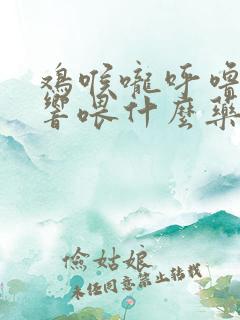 鸡喉咙呼噜
响喂什麽药
俭姑娘
未经同意禁止转载